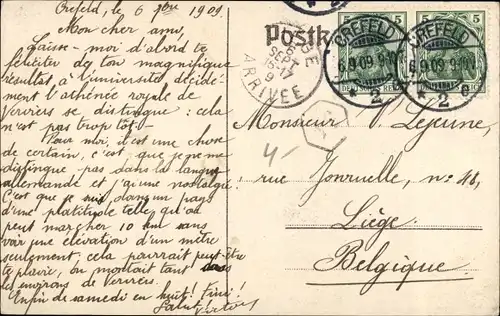 Crefeld, le 6 7bre 1909.
Mon cher ami,
Laisse-moi d'abord te
féliciter de ton magnifique
résultat à l'université décidé-
ment l'athénée royale de
Verviers se distingue: cela
n'est pas trop tôt!
Pour moi, il est une chose
de certain, c'est que je ne me
distingue pas dans la langue
allemande et j'ai une nostalgie!
C'est que je suis dans un pays
d'une platitude telle qu'on
peut marcher 10 km sans
voir une élévation d'un mètre
seulement, cela pourrait peut-être
te plaire, on montait tant
les environs de Verviers.
Enfin de samedi en huit! Fini!
Salut! Victor
Postk
ARRIVÉE
SEPT
CREFELD
6.9.09.9-10V
* 2 e
CREFELD
6.9.09.9-10V
* 2 e
5 5
DEUTSCHES REICH
Monsieur V. Lejeune,
rue Jonruelle, no 48,
Liège.
Belgique.
4-